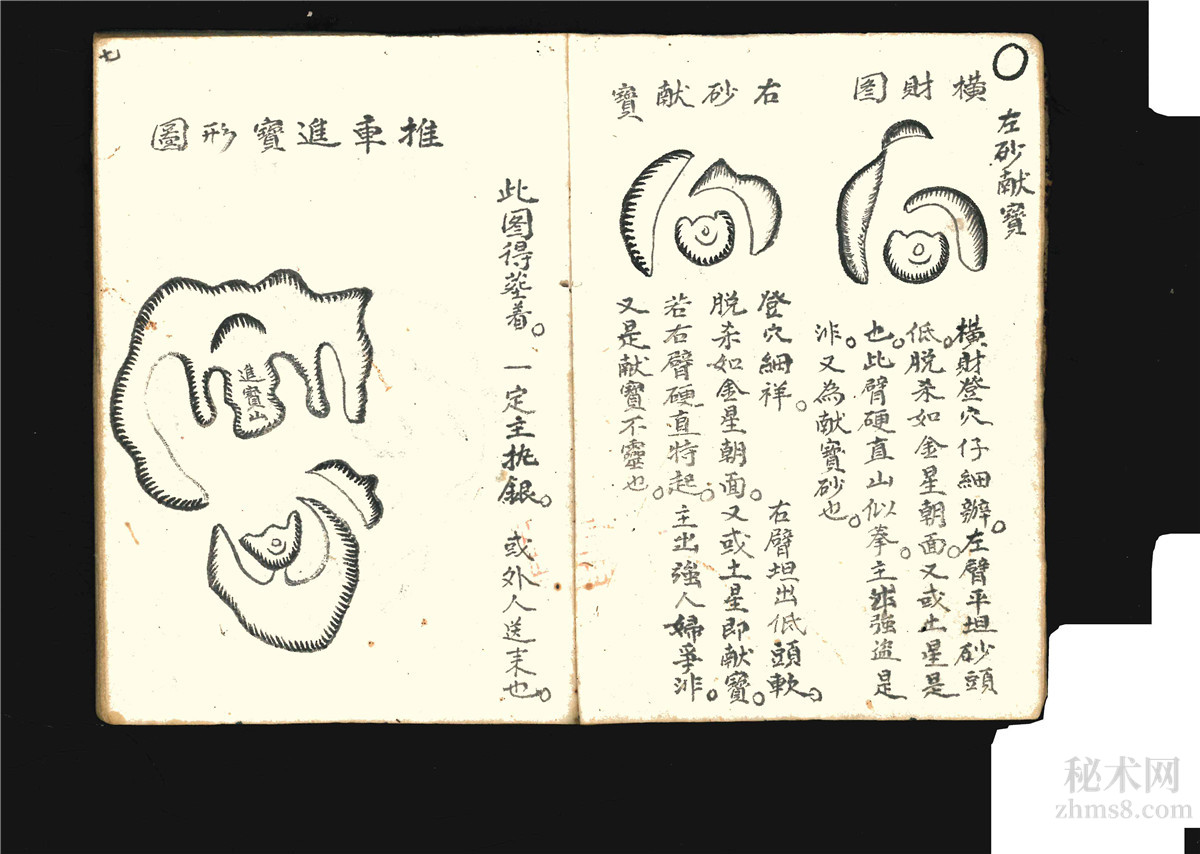 橫財图
左砂献寶
橫財登穴仔細辦。左臂平坦砂頭
低。脱杀如金星朝面。又或土星是
也。此臂硬直山似拳。主非強盗是
非。又為献寶砂也。
右砂献寶
登穴細祥。右臂坦出低頭軟。
脱杀如金星朝面。又或土星即献寶。
若右臂硬直特起。主出強人婦爭非。
又是献寶不靈也。
此图得塟着。一定主执銀。或外人送来也。
推車進寶形圖
進寶山
七
秘术网
zhms8.com